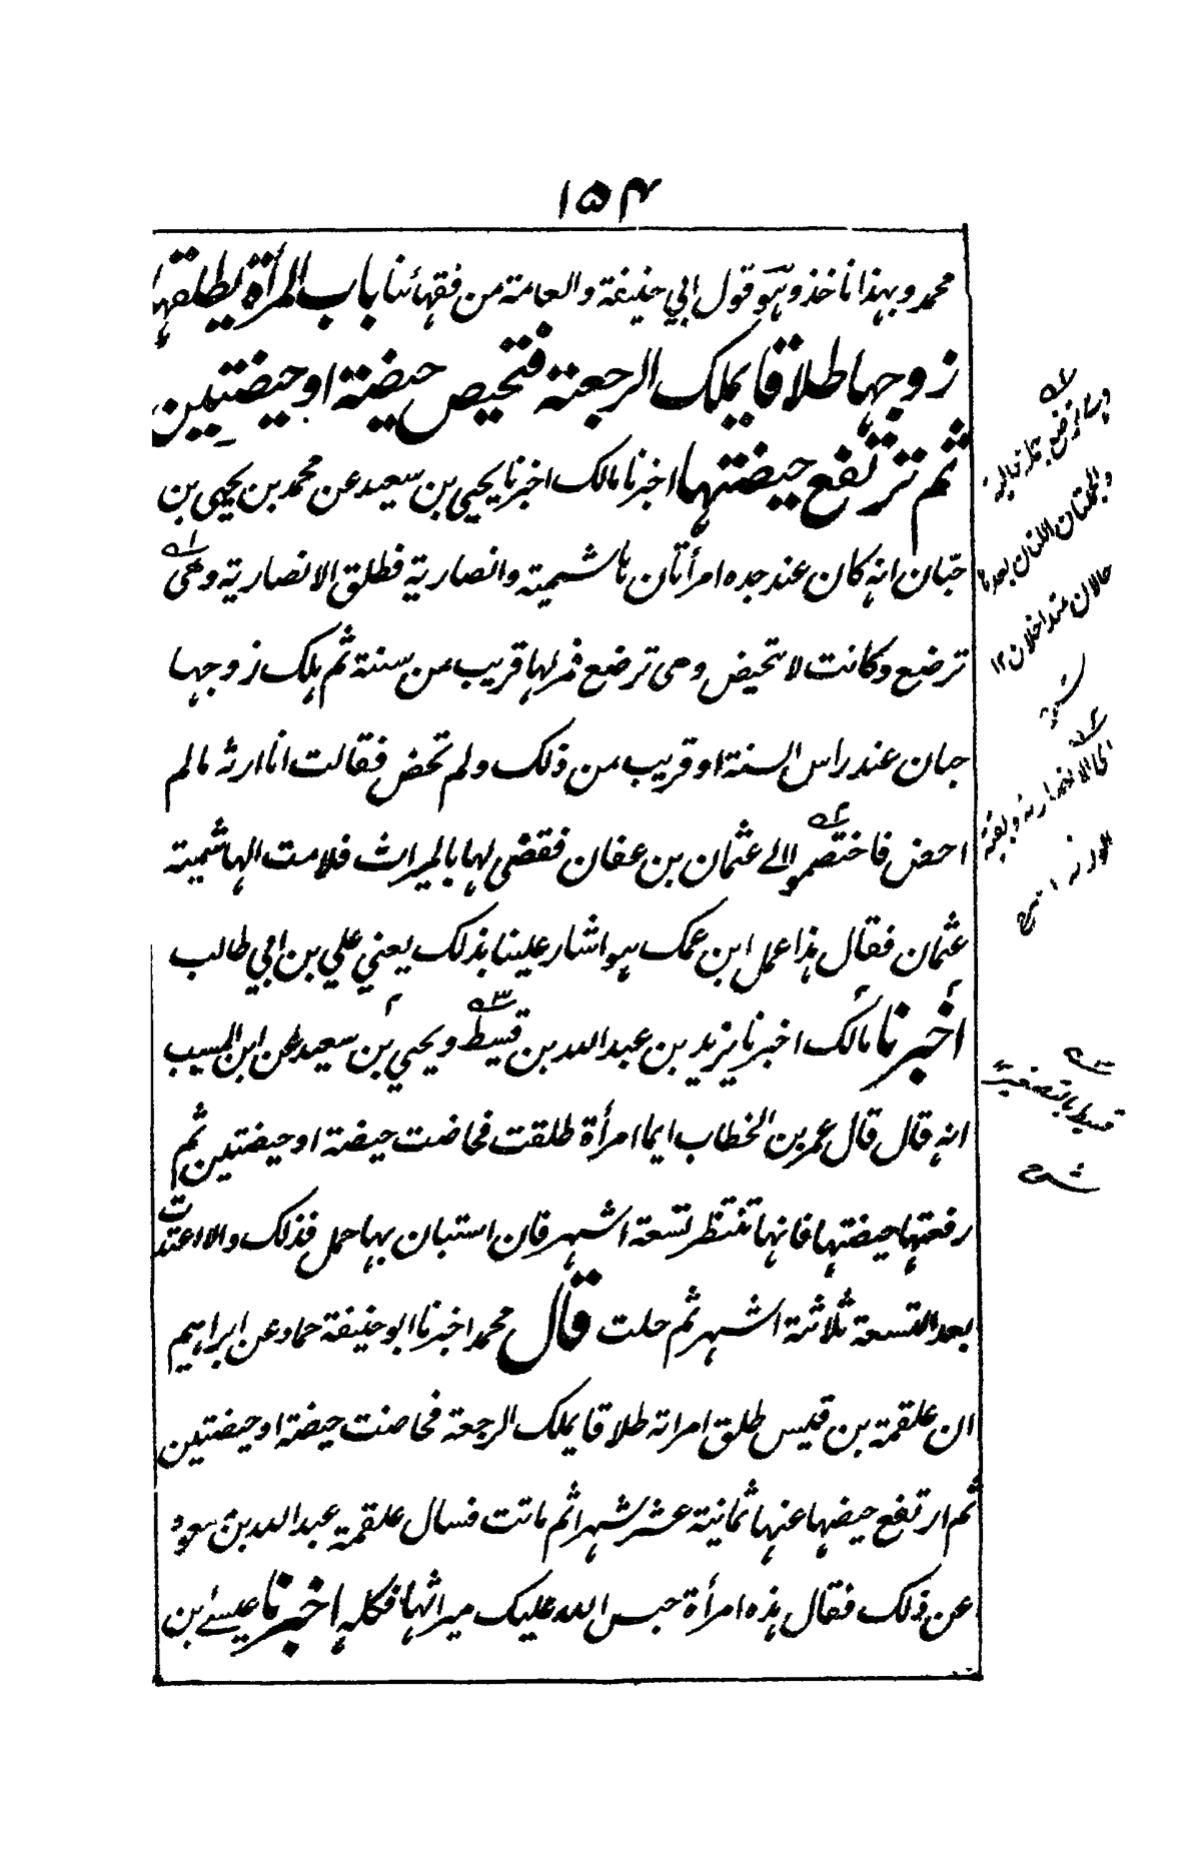 ۱۵۴
محمد وبهذا ناخذ وهو قول ابي حنيفة والعامة من فقهائنا باب المرأة يطلقها
زوجها طلاقا يملك الرجعة فتحيض حيضة او حيضتين
ثم ترتفع حيضتها اخبرنا مالك اخبرنا يحيى بن سعيد عن محمد بن يحيى بن
حبان انه كان عند جده امرأتان هاشمية وانصارية فطلق الانصارية وهى
ترضع وكانت لا تحيض وهى ترضع فمر لها قريب من سنة ثم هلك زوجها
حبان عند راس السنة او قريب من ذلك ولم تحض فقالت انا ارثه مالم
احض فاختصموا الى عثمان بن عفان فقضى لها بالميراث فلامت الهاشمية
عثمان فقال هذا عمل ابن عمك هو اشار علينا بذلك يعني علي بن ابي طالب
اخبرنا مالك اخبرنا يزيد بن عبد الله بن قسيط ويحيي بن سعيد عن ابن المسيب
انه قال قال عمر بن الخطاب ايما امرأة طلقت فحاضت حيضة او حيضتين ثم
رفعتها حيضتها فانها تنتظر تسعة اشهر فان استبان بها حمل فذلك والا اعتدت
بعد التسعة ثلاثة اشهر ثم حلت قال محمد اخبرنا ابو حنيفة حماد عن ابراهيم
ان علقمة بن قيس طلق امراته طلاقا يملك الرجعة فحاضت حيضة او حيضتين
ثم ارتفع حيضها عنها ثمانية عشر شهرا ثم ماتت فسال علقمة عبد الله بن مسعود
عن ذلك فقال هذه امرأة حبس الله عليك ميراثها فكله اخبرنا عيسى بن
وهى ترضع جملة حالية
والجملتان اللتان بعدها
حالان متداخلان ۱۲
اى الانصارية وبقية
الورثة
قسيط بالتصغير
شرح